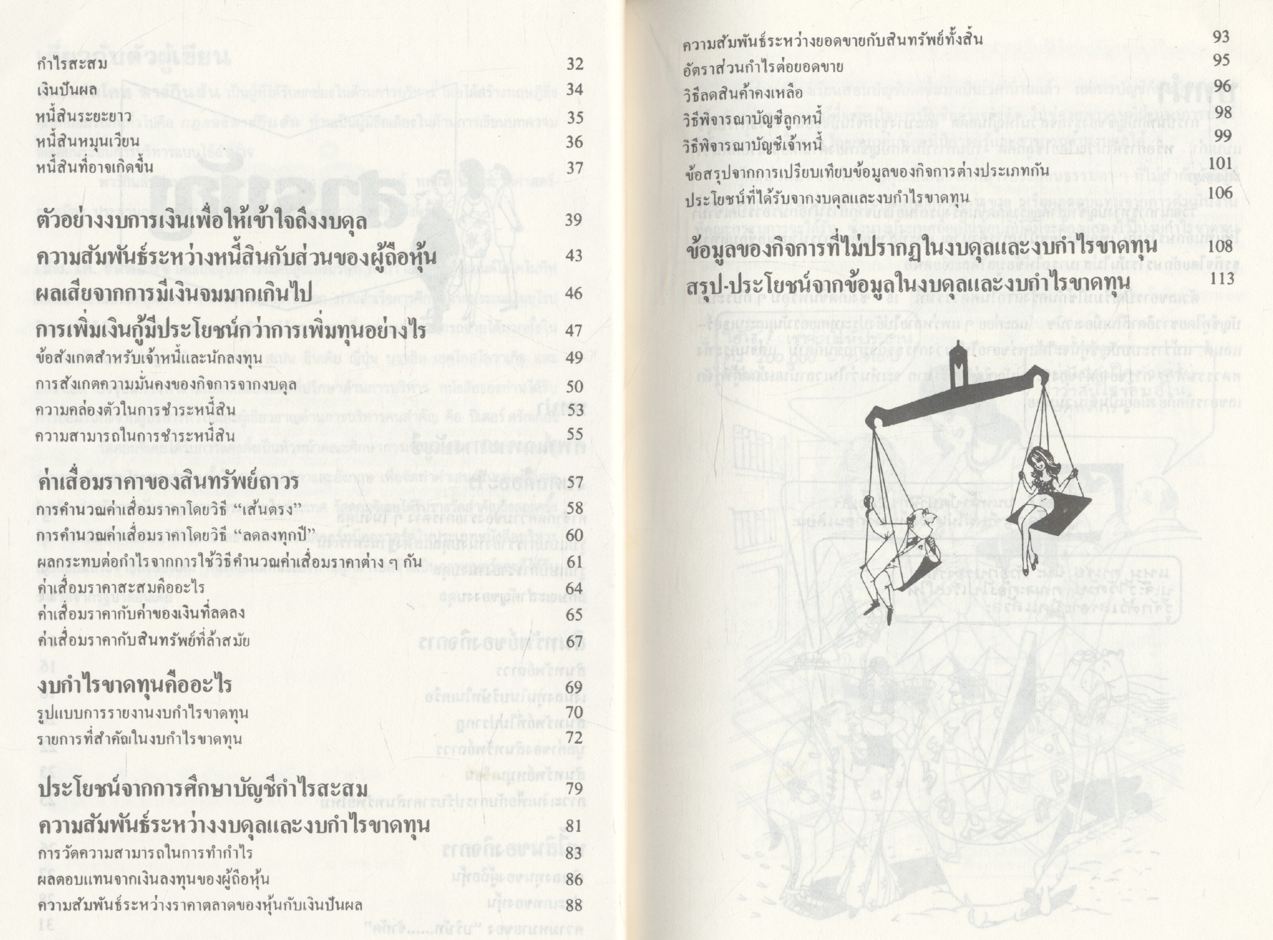 กำไรสะสม 32
เงินปันผล 34
หนี้สินระยะยาว 35
หนี้สินหมุนเวียน 36
หนี้สินที่อาจเกิดขึ้น 37
ตัวอย่างงบการเงินเพื่อให้เข้าใจถึงงบดุล 39
ความสัมพันธ์ระหว่างหนี้สินกับส่วนของผู้ถือหุ้น 43
ผลเสียจากการมีเงินจมมากเกินไป 46
การเพิ่มเงินกู้มีประโยชน์กว่าการเพิ่มทุนอย่างไร 47
ข้อสังเกตสำหรับเจ้าหนี้และนักลงทุน 49
การสังเกตความมั่นคงของกิจการจากงบดุล 50
ความคล่องตัวในการชำระหนี้สิน 53
ความสามารถในการชำระหนี้สิน 55
ค่าเสื่อมราคาของสินทรัพย์ถาวร 57
การคำนวณค่าเสื่อมราคาโดยวิธี “เส้นตรง” 58
การคำนวณค่าเสื่อมราคาโดยวิธี “ลดลงทุกปี” 60
ผลกระทบต่อกำไรจากการใช้วิธีคำนวณค่าเสื่อมราคาต่าง ๆ กัน 61
ค่าเสื่อมราคาสะสมคืออะไร 64
ค่าเสื่อมราคากับค่าของเงินที่ลดลง 65
ค่าเสื่อมราคากับสินทรัพย์ที่ล้าสมัย 67
งบกำไรขาดทุนคืออะไร 69
รูปแบบการรายงานงบกำไรขาดทุน 70
รายการที่สำคัญในงบกำไรขาดทุน 72
ประโยชน์จากการศึกษาบัญชีกำไรสะสม 79
ความสัมพันธ์ระหว่างงบดุลและงบกำไรขาดทุน 81
การวัดความสามารถในการทำกำไร 83
ผลตอบแทนจากเงินลงทุนของผู้ถือหุ้น 86
ความสัมพันธ์ระหว่างราคาตลาดของหุ้นกับเงินปันผล 88
ความสัมพันธ์ระหว่างยอดขายกับสินทรัพย์ทั้งสิ้น 93
อัตราส่วนกำไรต่อยอดขาย 95
วิธีลดสินค้าคงเหลือ 96
วิธีพิจารณาบัญชีลูกหนี้ 98
วิธีพิจารณาบัญชีเจ้าหนี้ 99
ข้อสรุปจากการเปรียบเทียบข้อมูลของกิจการต่างประเภทกัน 101
ประโยชน์ที่ได้รับจากงบดุลและงบกำไรขาดทุน 106
ข้อมูลของกิจการที่ไม่ปรากฏในงบดุลและงบกำไรขาดทุน 108
สรุป-ประโยชน์จากข้อมูลในงบดุลและงบกำไรขาดทุน 113